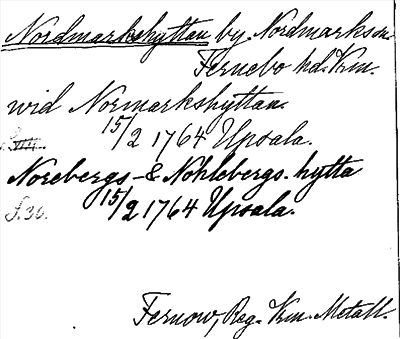 Nordmarkshyttan by, Nordmarks sn.
Fernebo hd. Krm.
wid Normarkshyttan.
15/2 1764 Upsala.
Norebergs- & Nohlebergs-hytta
S.30. 15/2 1764 Upsala.
Fernow, Reg. Krm. Metall.